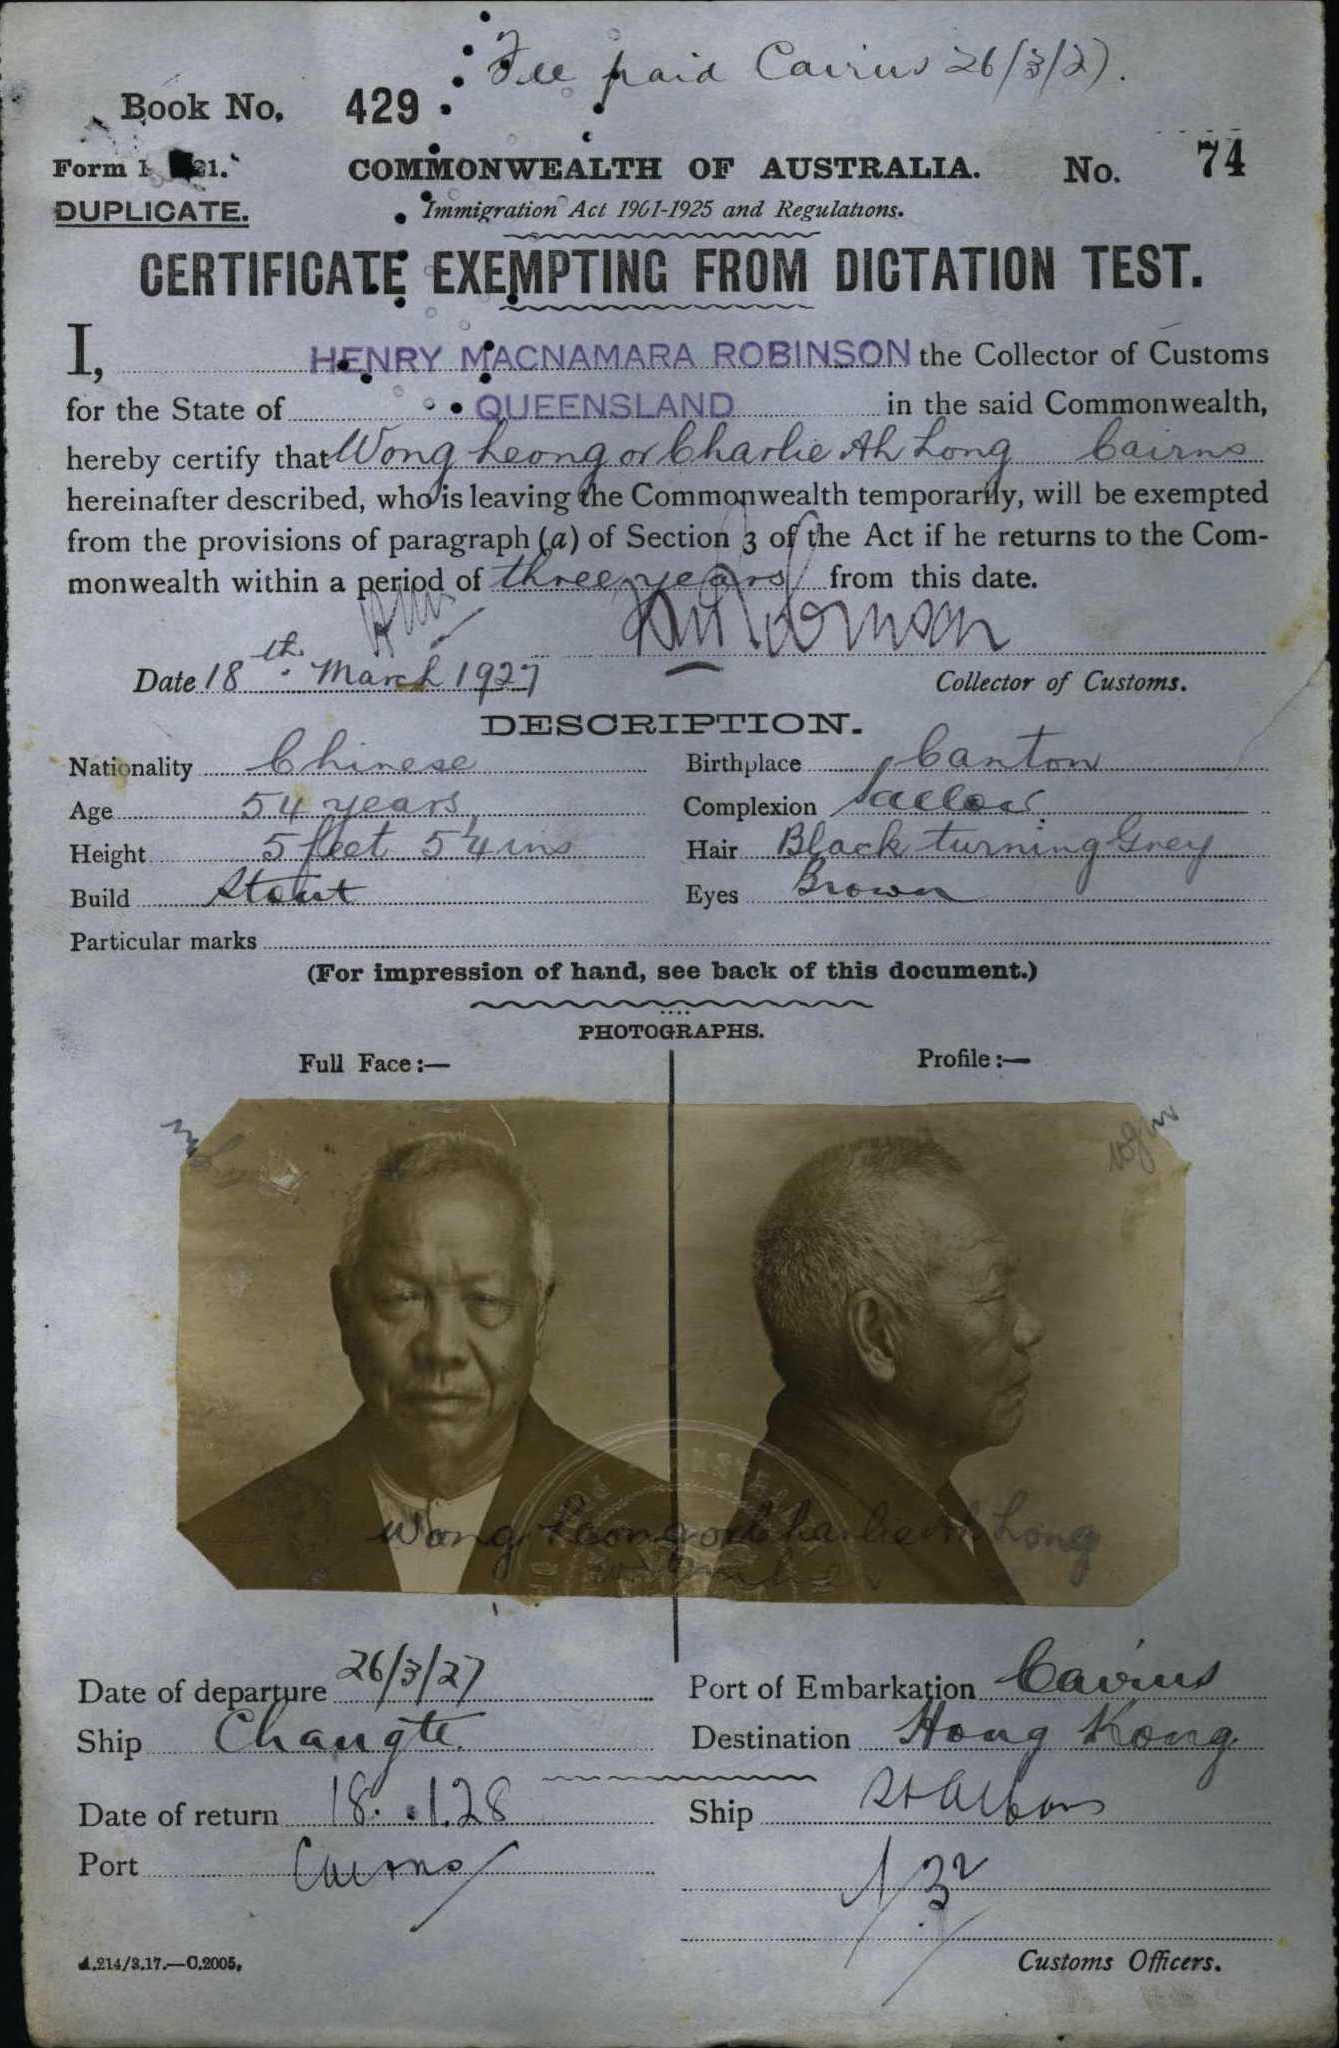 Fee paid Cairns 26/3/27.
Book No. 429
Form 21.
COMMONWEALTH OF AUSTRALIA. No. 74
DUPLICATE.
Immigration Act 1901-1925 and Regulations.
CERTIFICATE EXEMPTING FROM DICTATION TEST.
I, HENRY MACNAMARA ROBINSON the Collector of Customs
for the State of QUEENSLAND in the said Commonwealth,
hereby certify that Wong Leong or Charlie Ah Long Cairns
hereinafter described, who is leaving the Commonwealth temporarily, will be exempted
from the provisions of paragraph (a) of Section 3 of the Act if he returns to the Com-
monwealth within a period of three years from this date.
Date 18th. March 1927
Collector of Customs.
DESCRIPTION.
Nationality Chinese Birthplace Canton
Age 54 years Complexion Sallow
Height 5 feet 5¼ ins Hair Black turning Grey
Build Stout Eyes Brown
Particular marks
(For impression of hand, see back of this document.)
PHOTOGRAPHS.
Full Face:— Profile:—
Wong Leong or Charlie Ah Long
Date of departure 26/3/27 Port of Embarkation Cairns
Ship Changte. Destination Hong Kong.
Date of return 18.1.28 Ship St Albans
Port Cairns
A.214/3.17.—C.2005.
Customs Officers.